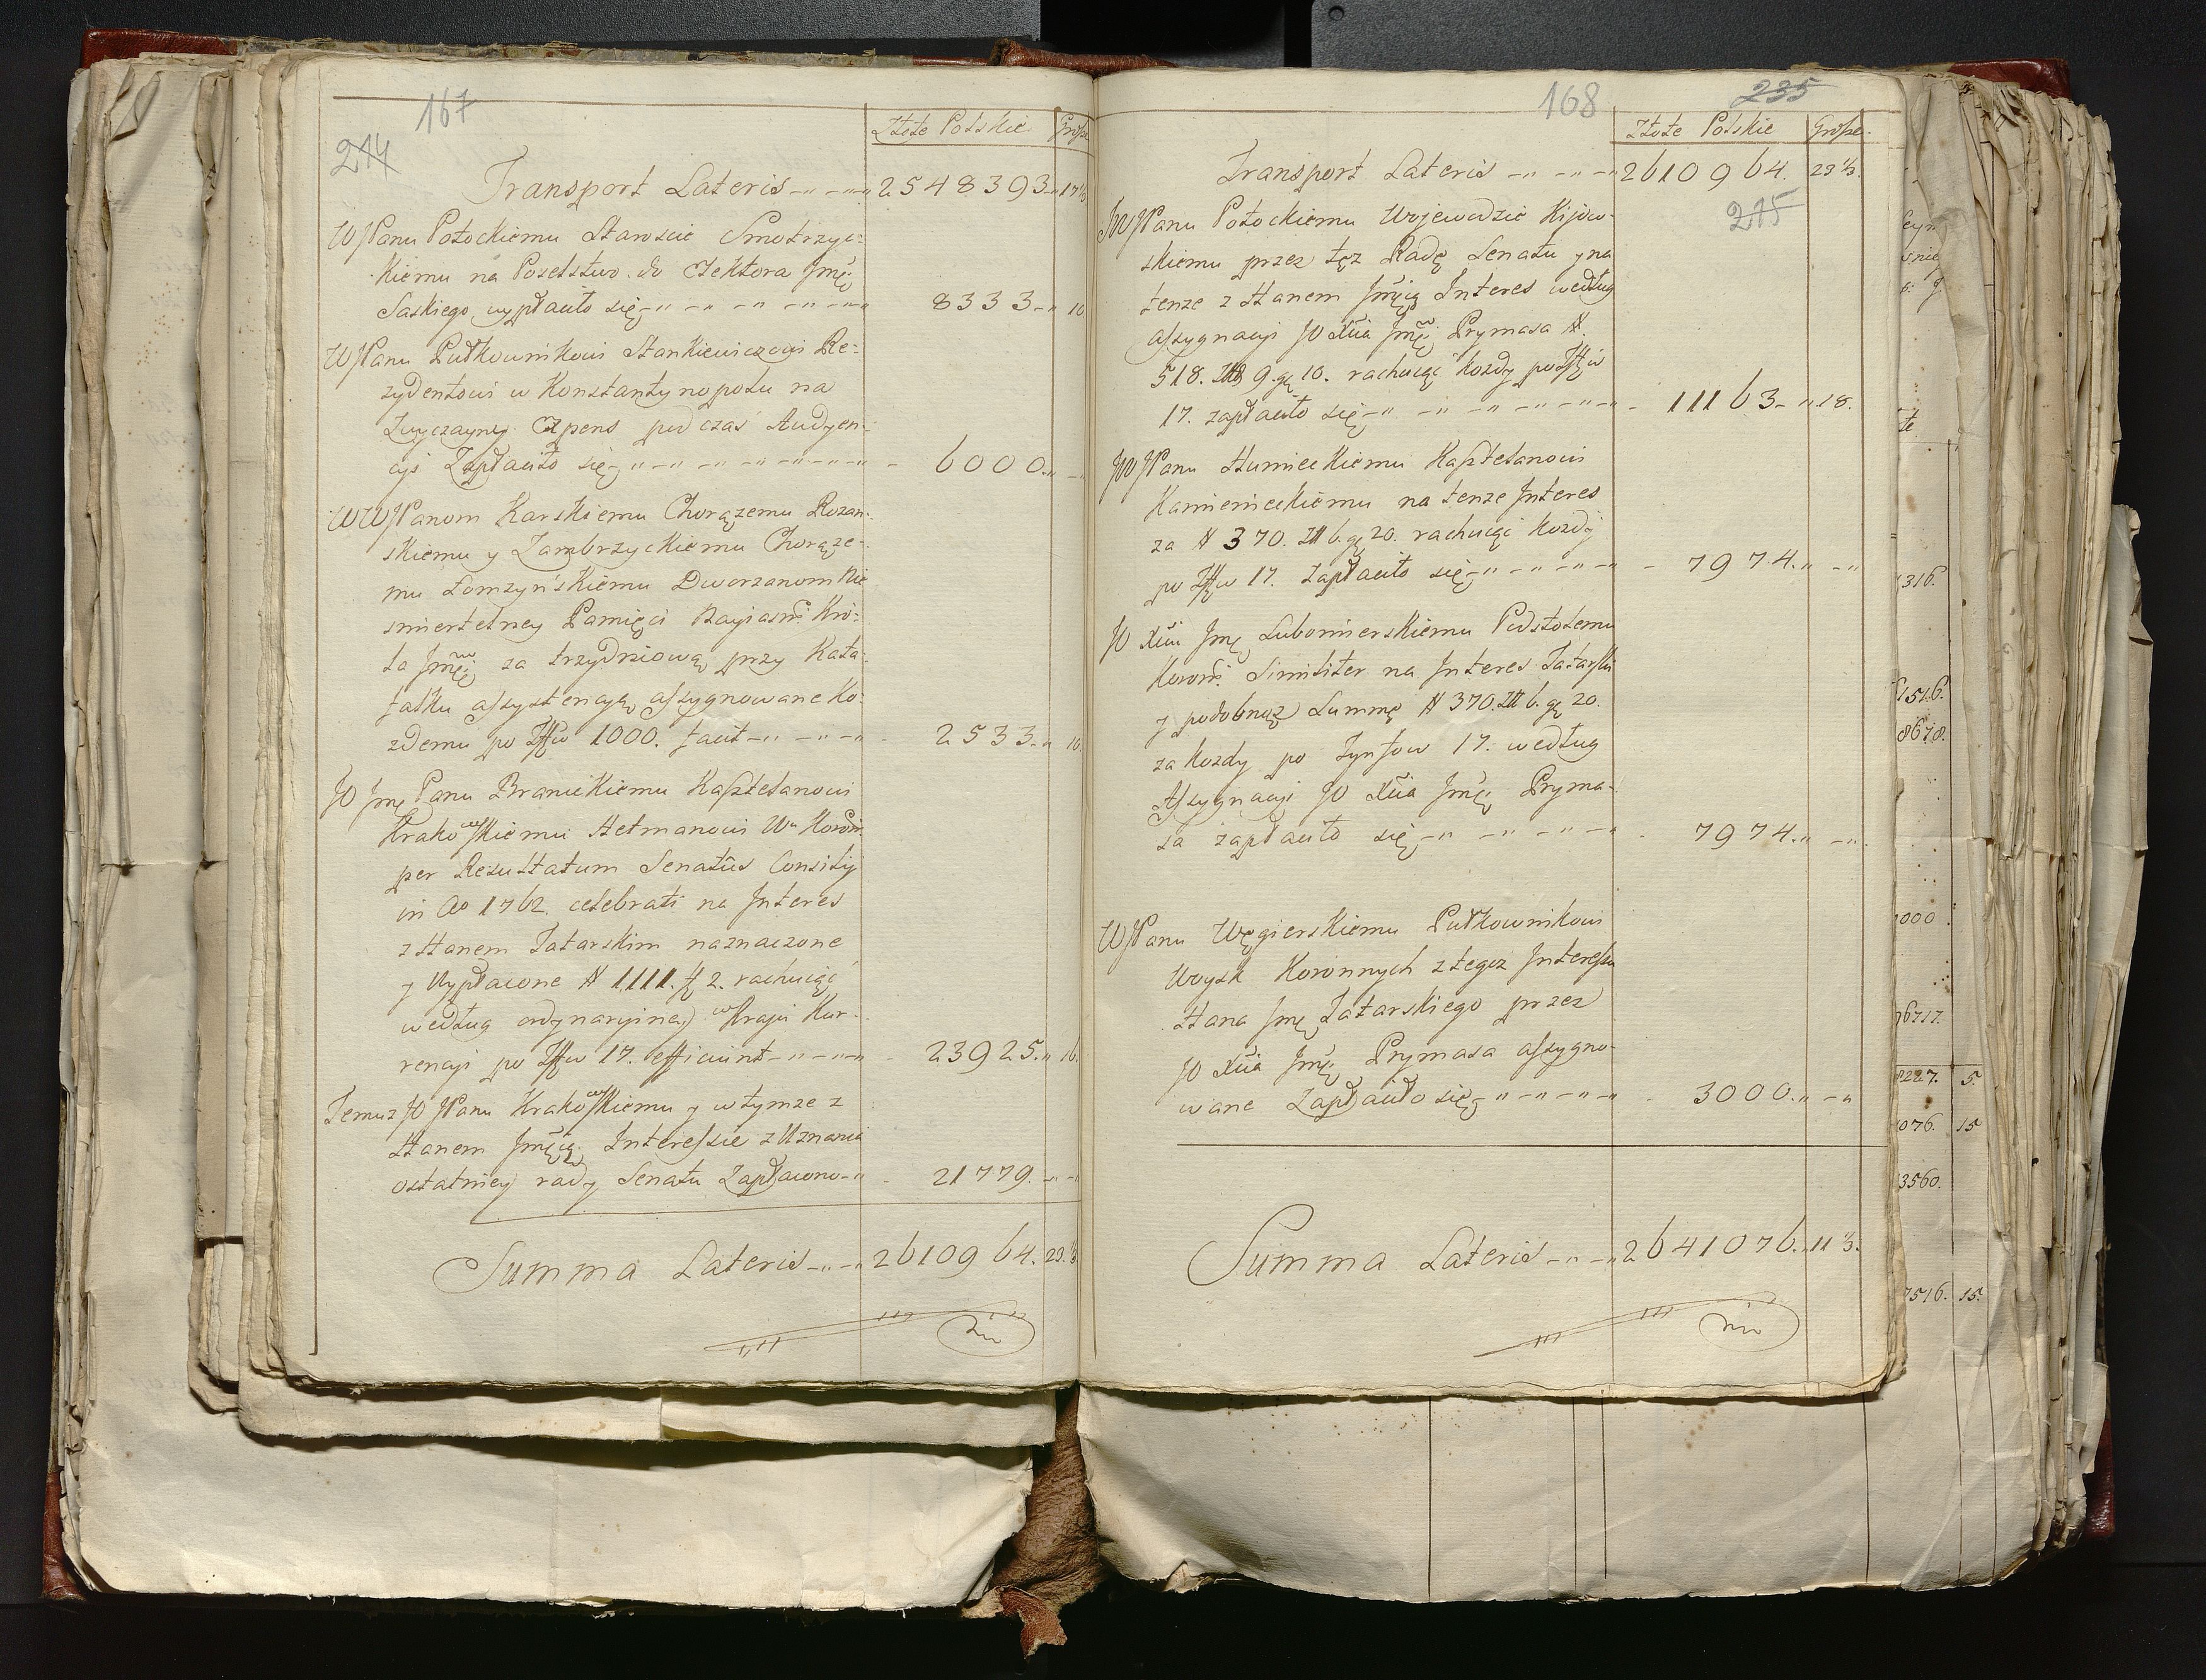 167
214
Złote Polskie Grosze
Transport Lateris 2548393 17⅓
WJPanu Potockiemu Staroscie Smotrzyc-
kiemu na Poselstwo do Elektora Jmę
Saskiego wypłaciło się 8333 10
WJPanu Pułkownikowi Stankiewiczowi Re-
zydentowi w Konstantynopolu na
Zwyczayny Expens podczas Audyen-
cyi Zapłaciło się 6000
WWJPanom Karskiemu Chorązemu Rozan-
skiemu y Zambrzyckiemu Chorąze-
mu Łomzyńskiemu Dworzanom Nie
smiertelney Pamięci Nayiasń Kró-
la Jmći za trzydniową przy Kata-
falku assystencyą assygnowane Ko-
zdemu po Tyfw 1000. facit 2533 10
JO Jmę Panu Branickiemu Kasztelanowi
Krakowskiemu Hetmanowi Wu Koroń
per Resultatum Senatûs Consilij
in Ao 1762. celebrati na Interes
z Hanem Tatarskim naznaczone
y Wypłacone # 1111. fl 2. rachuiąc
według ordynaryiney w Kraju Kur-
rencyi po Tyfw 17. efficiunt 23925 16
Temuz JO JPanu Krakowskiemu y w tymze z
Hanem Jmścią Interessie z Uznania
ostatniey rady Senatu Zapłacono 21779
Summa Lateris 2610964. 23⅓
168
235
Złote Polskie Grosze
Transport Lateris 2610964. 23⅓
215
JWJPanu Potockiemu Wojewodzie Kijow-
skiemu przez tęz Radę Senatu y na
tenze z Hanem Jmścią Interes według
assygnacyi JO Xcia Jmći Prymasa #
518. Tyf 9. gr 10. rachuiąc kozdy po Tyfw
17. zapłaciło się 11163 18.
JWJPanu Humieckiemu Kasztelanowi
Kamienieckiemu na tenze Interes
za # 370. Tyf 6. gr 20. rachuiąc kozdy
po Tyfw 17. zapłaciło się 7974.
JO Xciu Jmę Lubomierskiemu Podstolemu
Koroń. Similiter na Interes Tatarski
y podobnąz Summę # 370. Tyf 6. gr 20.
za kozdy po Tynfow 17. według
Assygnacyi JO Xcia Jmći Pryma-
sa zapłaciło się 7974.
WJPanu Węgierskiemu Pułkownikowi
Woysk Koronnych z tegoz Interessu
Hana Jmę Tatarskiego przez
JO Xcia Jmći Prymasa assygno-
wane Zapłaciło się 3000.
Summa Lateris 2641076. 11⅓.